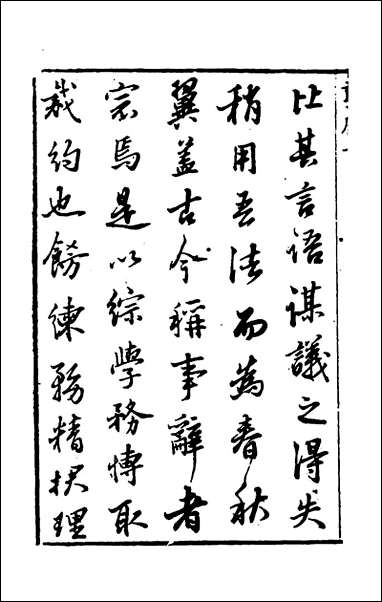 比其言語謀議之得失
稍用吾法而為春秋
翼蓋古今稱事辭者
宗焉是以綜學務愽取
裁約也餝練務精捃理